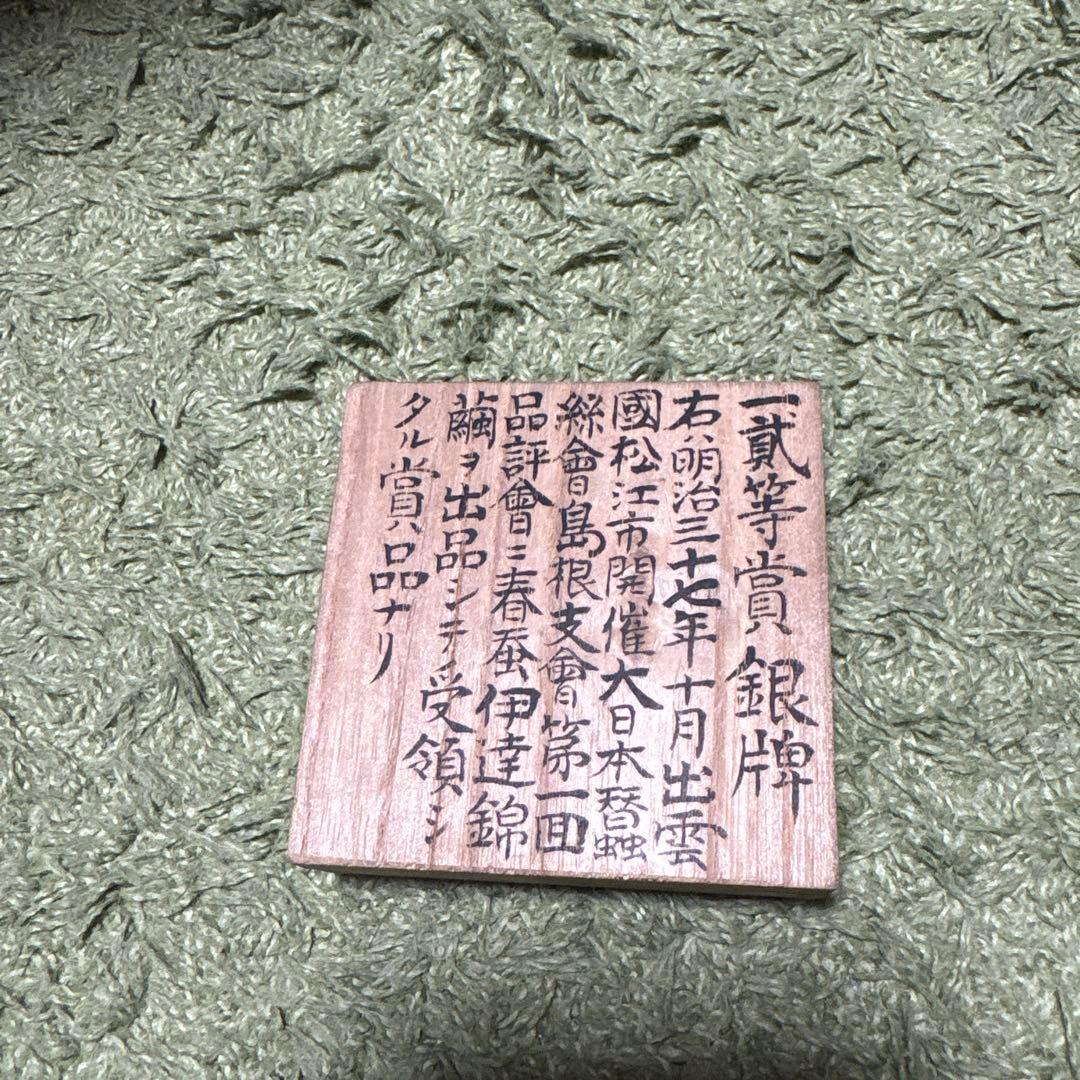 一貳等賞銀牌
右ハ明治三十七年十月出雲
國松江市開催大日本蠶
絲會島根支會第一回
品評會ニ春蚕伊達錦
繭ヲ出品シテ受領シ
タル賞品ナリ